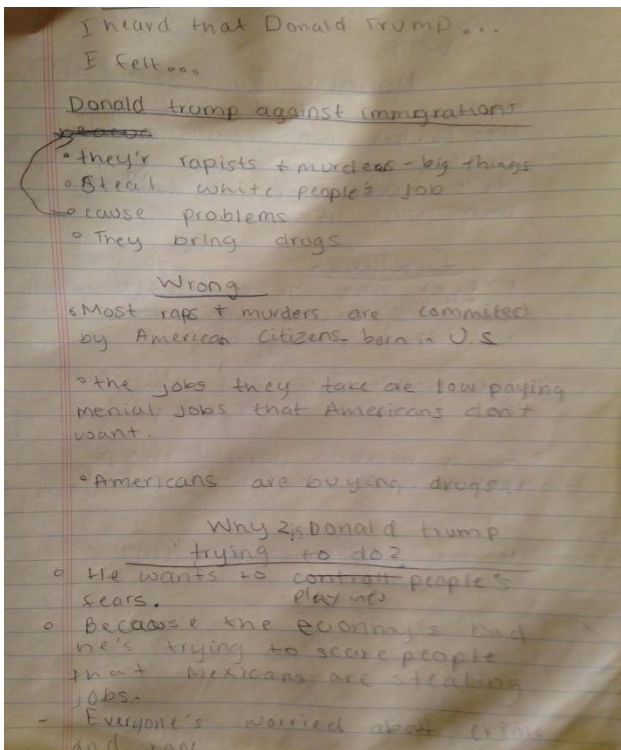 I heard that Donald Trump...
I felt...
Donald trump against immigrations
• they'r rapists + murders - big things
• Steal white people's job
• cause problems
• They bring drugs
Wrong
• Most raps + murders are commited
by American Citizens - born in U S
• the jobs they take are low paying
menial jobs that Americans don't
want.
• Americans are buying drugs.
Why is Donald trump
trying to do?
• He wants to controll people's
play into
fears.
• Because the econmy's bad
he's trying to scare people
that Mexicans are stealing
jobs.
- Everyone's worried about crime
and rape